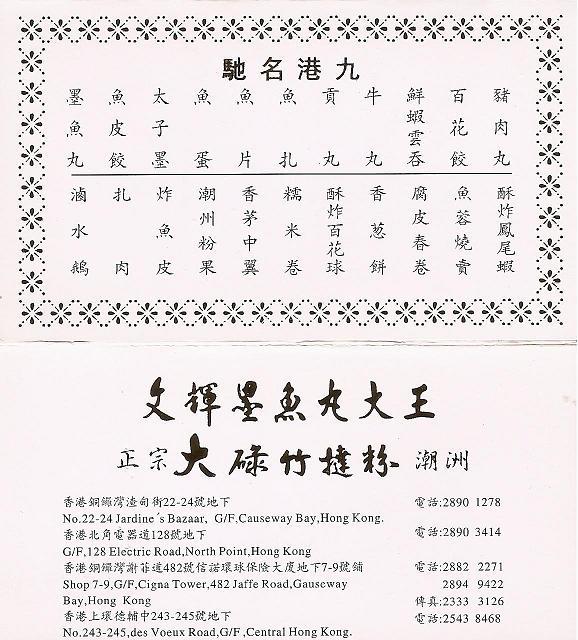 馳名港九
墨魚丸
魚皮餃
太子墨
魚蛋
魚片
魚扎
貢丸
牛丸
鮮蝦雲吞
百花餃
豬肉丸
滷水鵝
扎肉
炸魚皮
潮州粉果
香茅中翼
糯米卷
酥炸百花球
香葱餅
腐皮春卷
魚蓉燒賣
酥炸鳳尾蝦
文輝墨魚丸大王
正宗大碌竹撻粉 潮洲
香港銅鑼灣渣甸街22-24號地下 電話:2890 1278
No.22-24 Jardine´s Bazaar, G/F,Causeway Bay,Hong Kong.
香港北角電器道128號地下 電話:2890 3414
G/F,128 Electric Road,North Point,Hong Kong
香港銅鑼灣謝菲道482號信諾環球保險大廈地下7-9號舖 電話:2882 2271
Shop 7-9,G/F,Cigna Tower,482 Jaffe Road,Gauseway 2894 9422
Bay,Hong Kong 傳真:2333 3126
香港上環德輔中243-245號地下 電話:2543 8468
No.243-245,des Voeux Road,G/F ,Central Hong Kong.